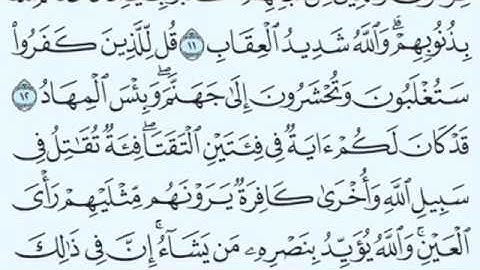 بِذُنُوبِهِمْ ۗ وَٱللَّهُ شَدِيدُ ٱلْعِقَابِ ١١ قُل لِّلَّذِينَ كَفَرُوا۟
سَتُغْلَبُونَ وَتُحْشَرُونَ إِلَىٰ جَهَنَّمَ ۚ وَبِئْسَ ٱلْمِهَادُ ١٢
قَدْ كَانَ لَكُمْ ءَايَةٌ فِى فِئَتَيْنِ ٱلْتَقَتَا ۖ فِئَةٌ تُقَٰتِلُ فِى
سَبِيلِ ٱللَّهِ وَأُخْرَىٰ كَافِرَةٌ يَرَوْنَهُم مِّثْلَيْهِمْ رَأْىَ
ٱلْعَيْنِ ۚ وَٱللَّهُ يُؤَيِّدُ بِنَصْرِهِۦ مَن يَشَآءُ ۗ إِنَّ فِى ذَٰلِكَ